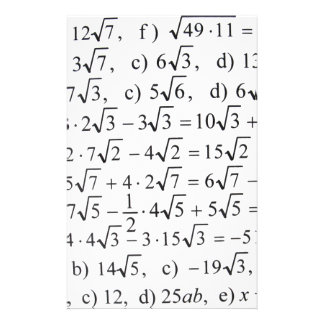 12√7, f) √49·11 =
3√7, c) 6√3, d) 13
7√3, c) 5√6, d) 6√
·2√3 − 3√3 = 10√3 +
2·7√2 − 4√2 = 15√2
5√7 + 4·2√7 = 6√7 −
7√5 − 1/2·4√5 + 5√5 =
4·4√3 − 3·15√3 = −5
b) 14√5, c) −19√3,
, c) 12, d) 25ab, e) x